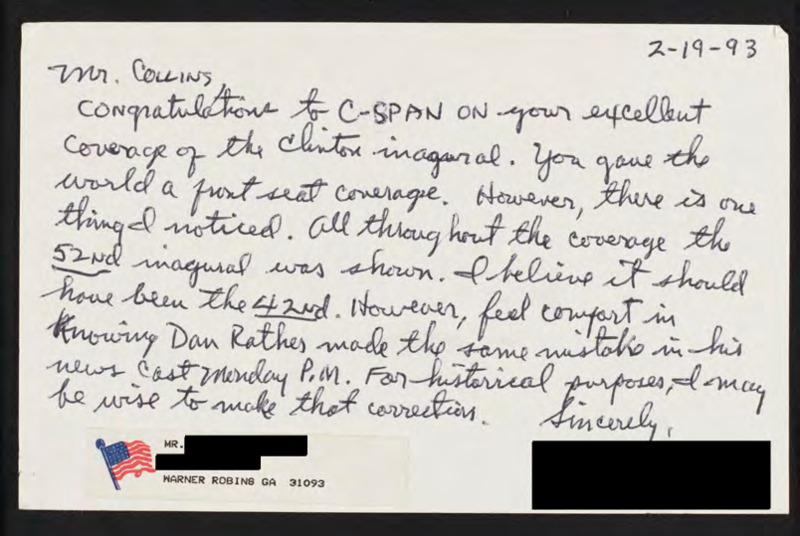 2-19-93
Mr. Collins,
Congratulations to C-SPAN ON your excellent
Coverage of the Clinton inagural. You gave the
world a front seat coverage. However, there is one
thing I noticed. All throughout the coverage the
52nd inagural was shown. I believe it should
have been the 42nd. However, feel comfort in
Knowing Dan Rather made the same mistake in his
news cast Monday P.M. For historical purposes, I may
be wise to make that correction.
Sincerely,
MR.
WARNER ROBINS GA 31093